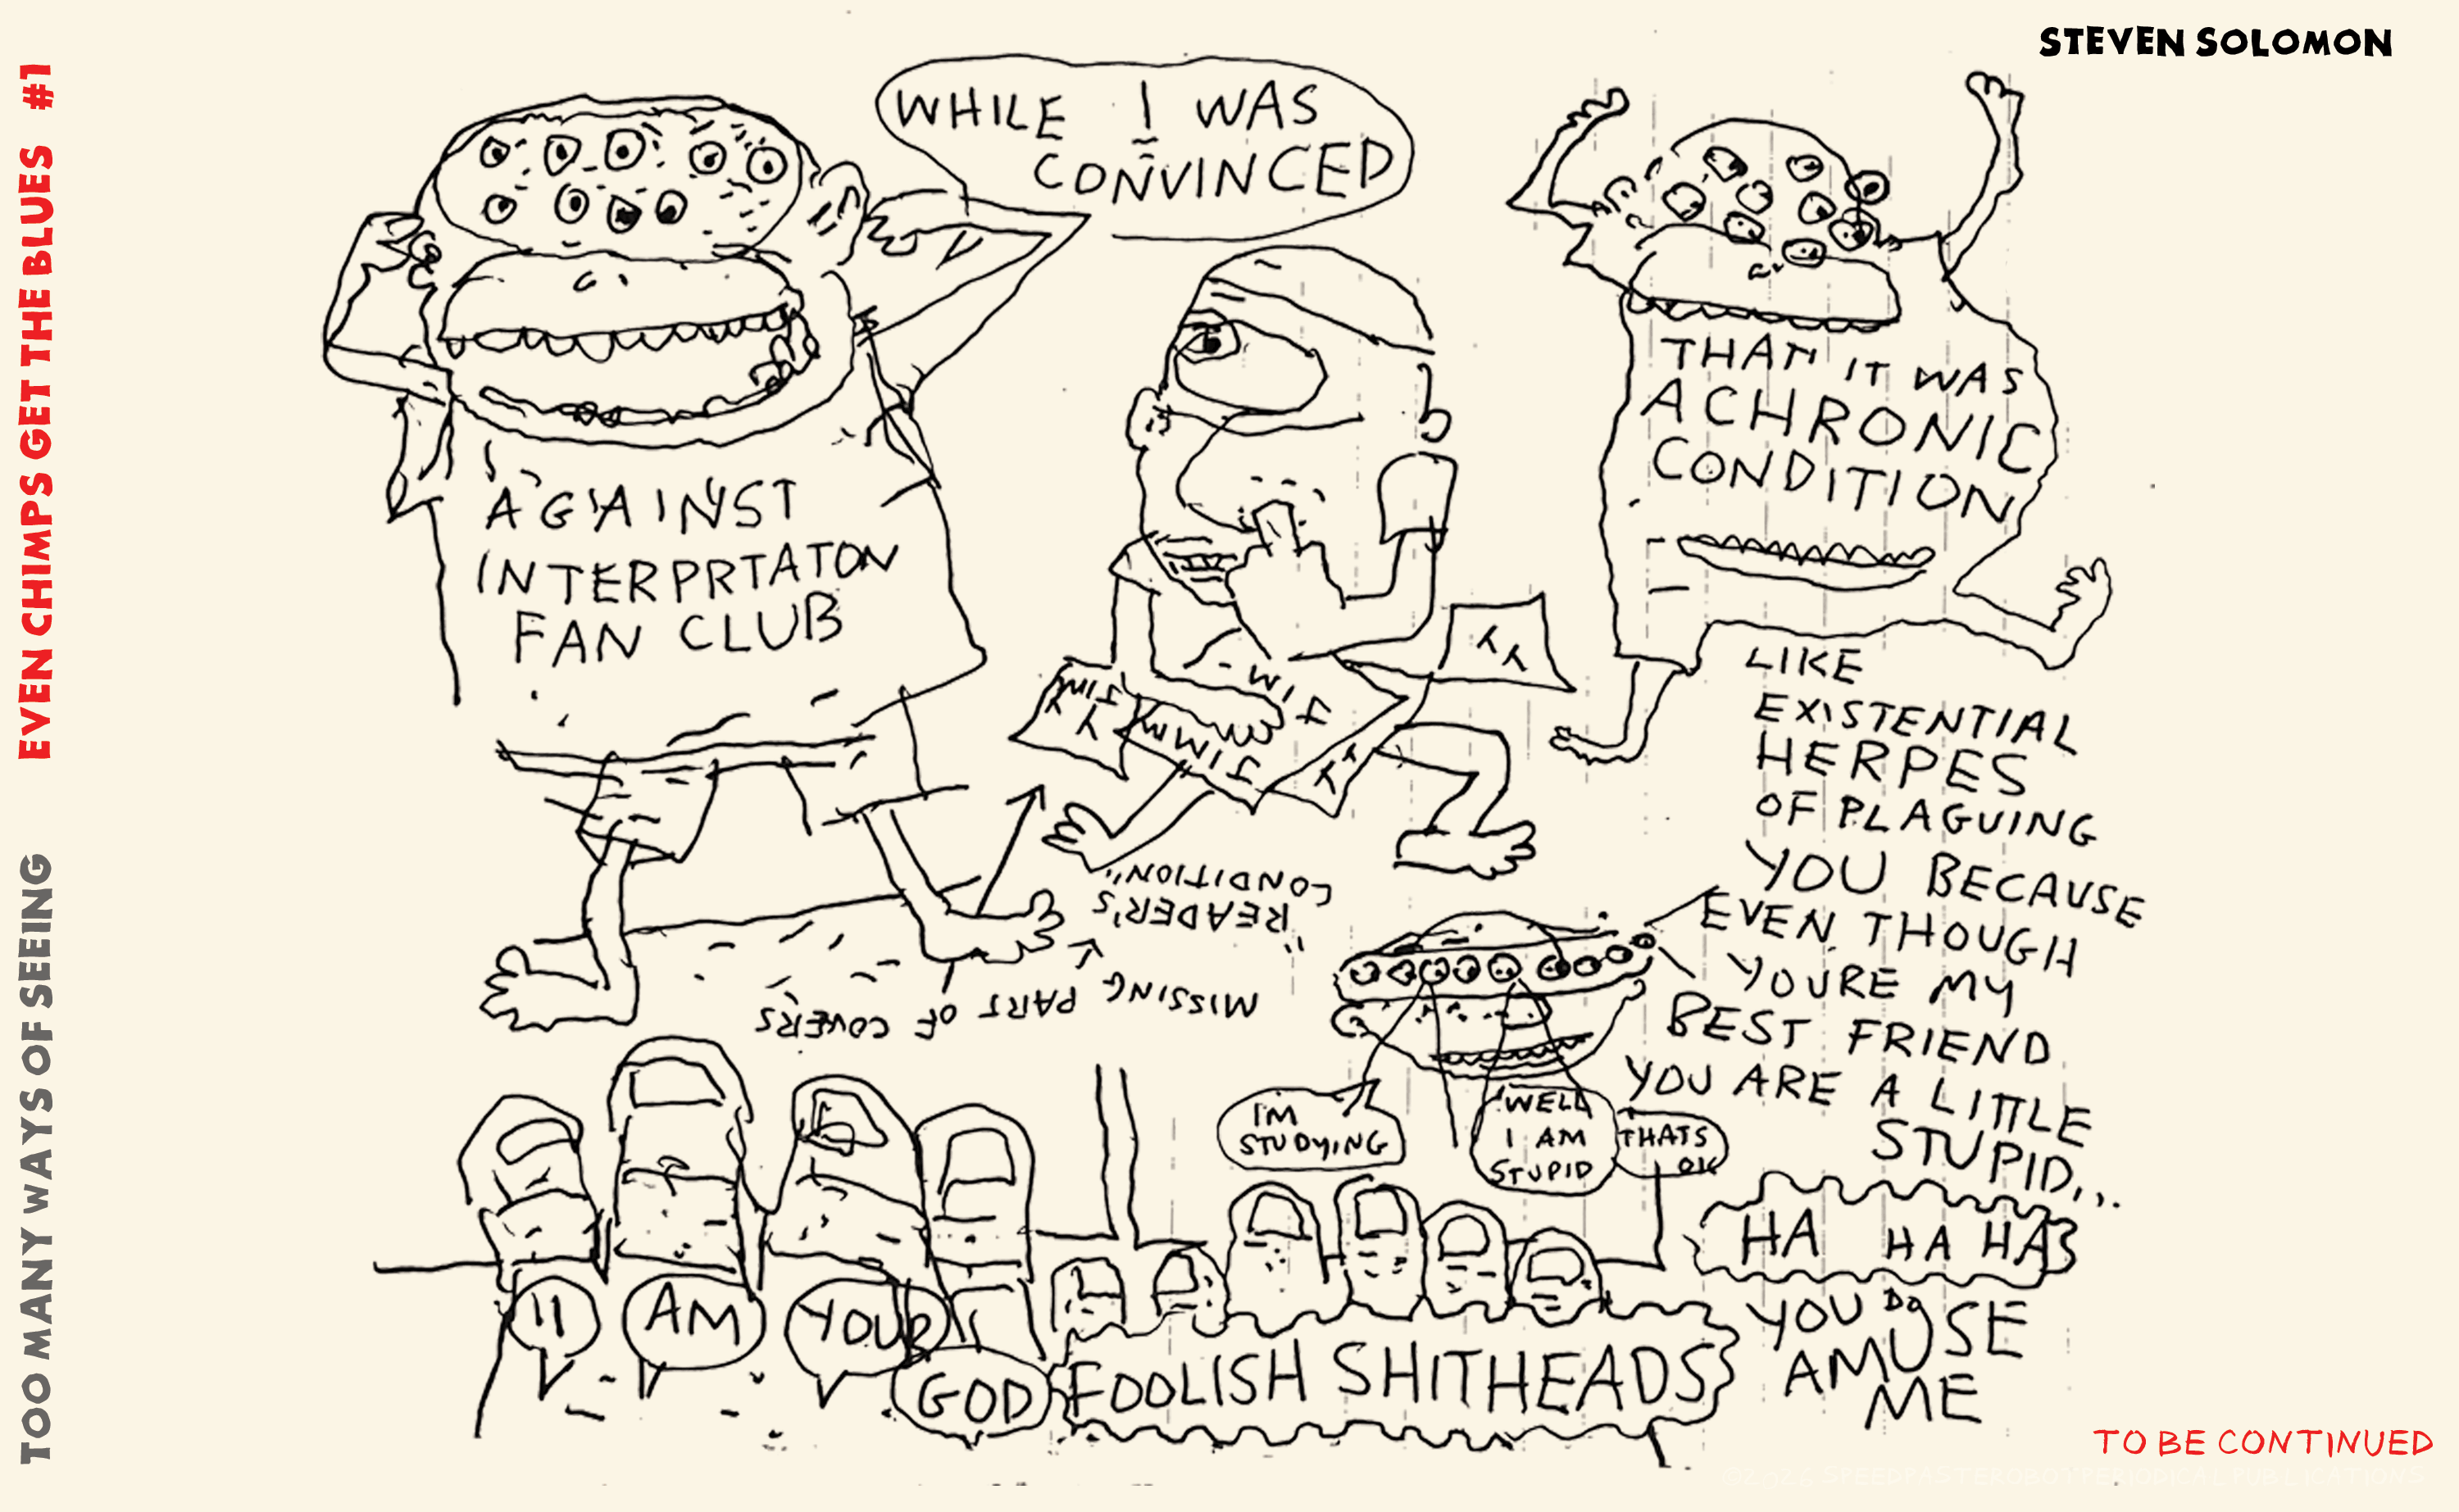 STEVEN SOLOMON
TOO MANY WAYS OF SEEING
EVEN CHIMPS GET THE BLUES #1
WHILE I WAS
CONVINCED
AGAINST
INTERPRTATON
FAN CLUB
THAT IT WAS
A CHRONIC
CONDITION
LIKE
EXISTENTIAL
HERPES
OF PLAGUING
YOU BECAUSE
EVEN THOUGH
YOURE MY
BEST FRIEND
YOU ARE A LITTLE
STUPID...
JIM
JIM
JIMM
MISSING PART OF COVERS
"READER'S
CONDITION"
I'M
STUDYING
WELL
I AM
STUPID
THATS
OK
HA HA HA
YOU DO
AMUSE
ME
I
AM
YOUR
GOD
FOOLISH SHITHEADS
TO BE CONTINUED